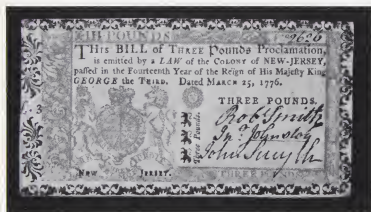 THIS BILL of THREE Pounds Proclamation,
is emitted by a LAW of the COLONY of NEW-JERSEY,
passed in the Fourteenth Year of the Reign of His Majesty King
GEORGE the THIRD. Dated MARCH 25, 1776.
THREE POUNDS.
Robt Smith
Jno Johnston
John Smyth
Three Pounds.
NEW JERSEY.
THREE POUNDS